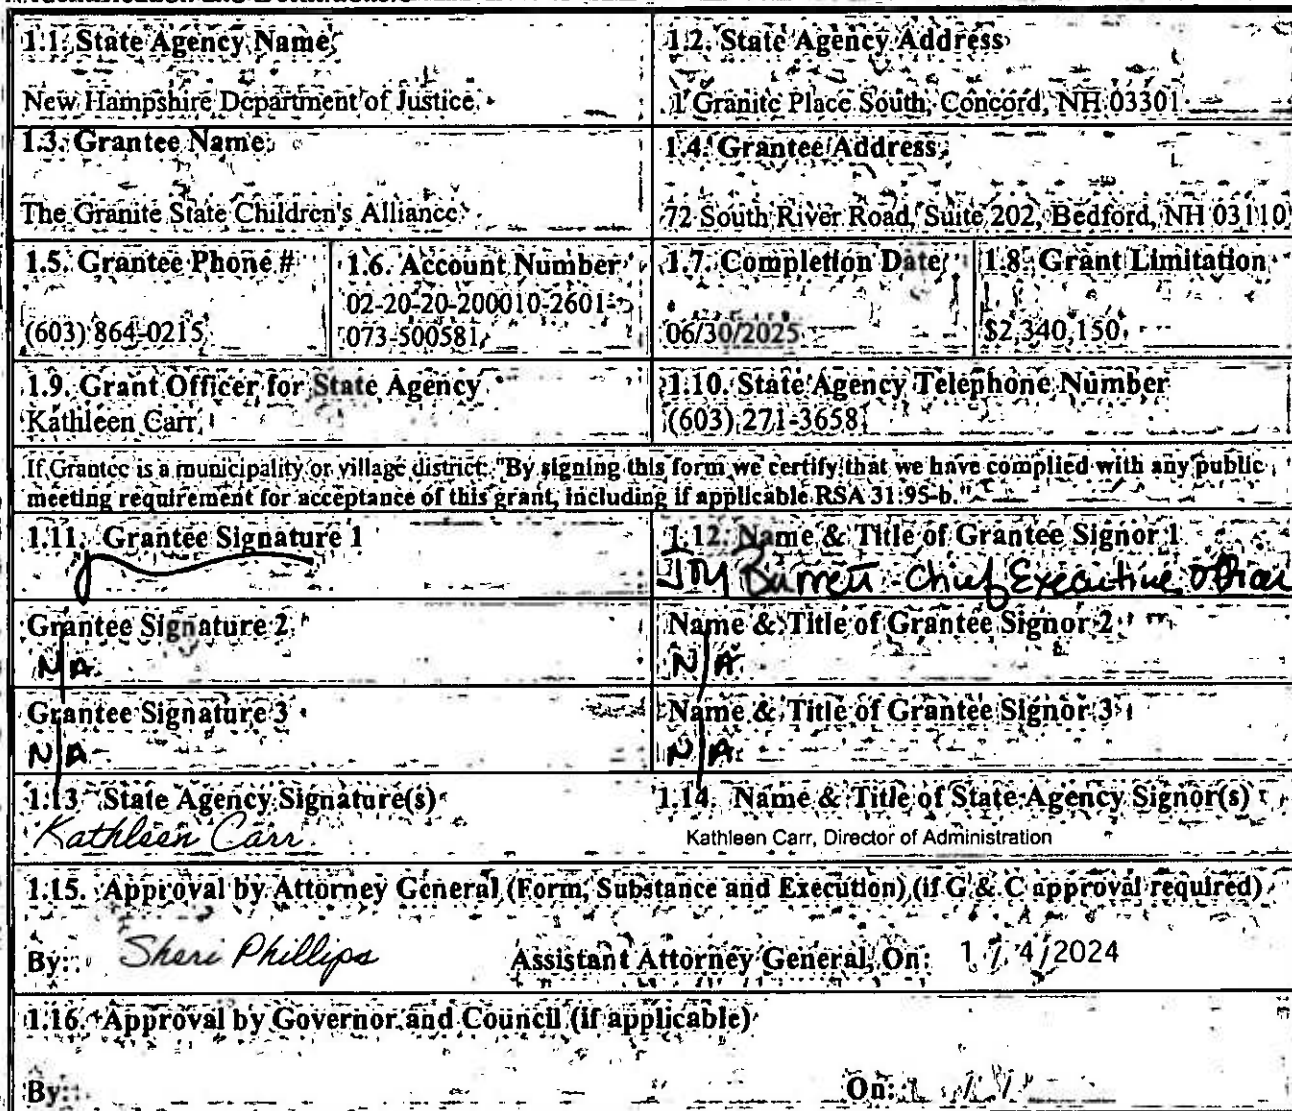 1.1. State Agency Name
New Hampshire Department of Justice
1.2. State Agency Address
1 Granite Place South, Concord, NH 03301
1.3. Grantee Name
The Granite State Children's Alliance
1.4. Grantee Address
72 South River Road, Suite 202, Bedford, NH 03110
1.5. Grantee Phone #
(603) 864-0215
1.6. Account Number
02-20-20-200010-2601-
073-500581
1.7. Completion Date
06/30/2025
1.8. Grant Limitation
$2,340,150
1.9. Grant Officer for State Agency
Kathleen Carr
1.10. State Agency Telephone Number
(603) 271-3658
If Grantee is a municipality or village district: "By signing this form we certify that we have complied with any public
meeting requirement for acceptance of this grant, including if applicable RSA 31:95-b."
1.11. Grantee Signature 1
1.12. Name & Title of Grantee Signor 1
Joy Barrett - Chief Executive Officer
Grantee Signature 2
N/A
Name & Title of Grantee Signor 2
N/A
Grantee Signature 3
N/A
Name & Title of Grantee Signor 3
N/A
1.13 State Agency Signature(s)
Kathleen Carr
1.14. Name & Title of State Agency Signor(s)
Kathleen Carr, Director of Administration
1.15. Approval by Attorney General (Form, Substance and Execution) (if G & C approval required)
By: Sheri Phillips Assistant Attorney General, On: 1/4/2024
1.16. Approval by Governor and Council (if applicable)
By: On: / /